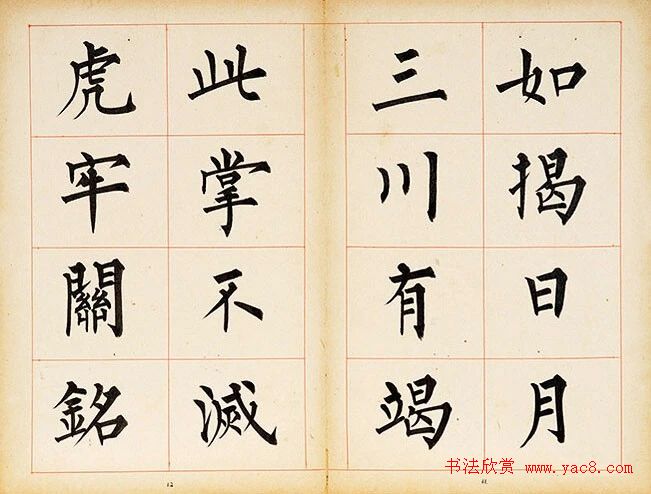 如揭日月
三川有竭
此掌不滅
虎牢關銘
书法欣赏 www.yac8.com